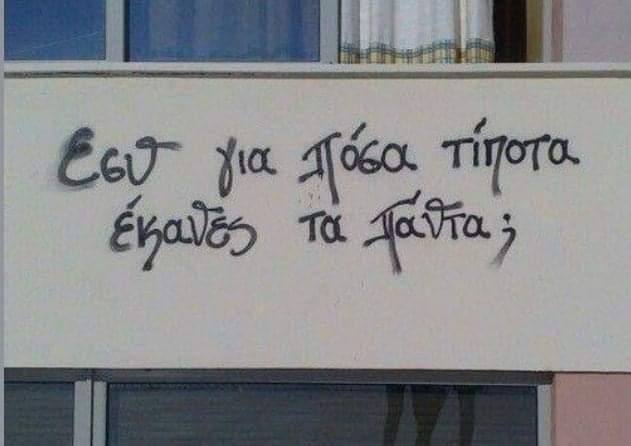 Εσύ για πόσα τίποτα
έκανες τα πάντα;